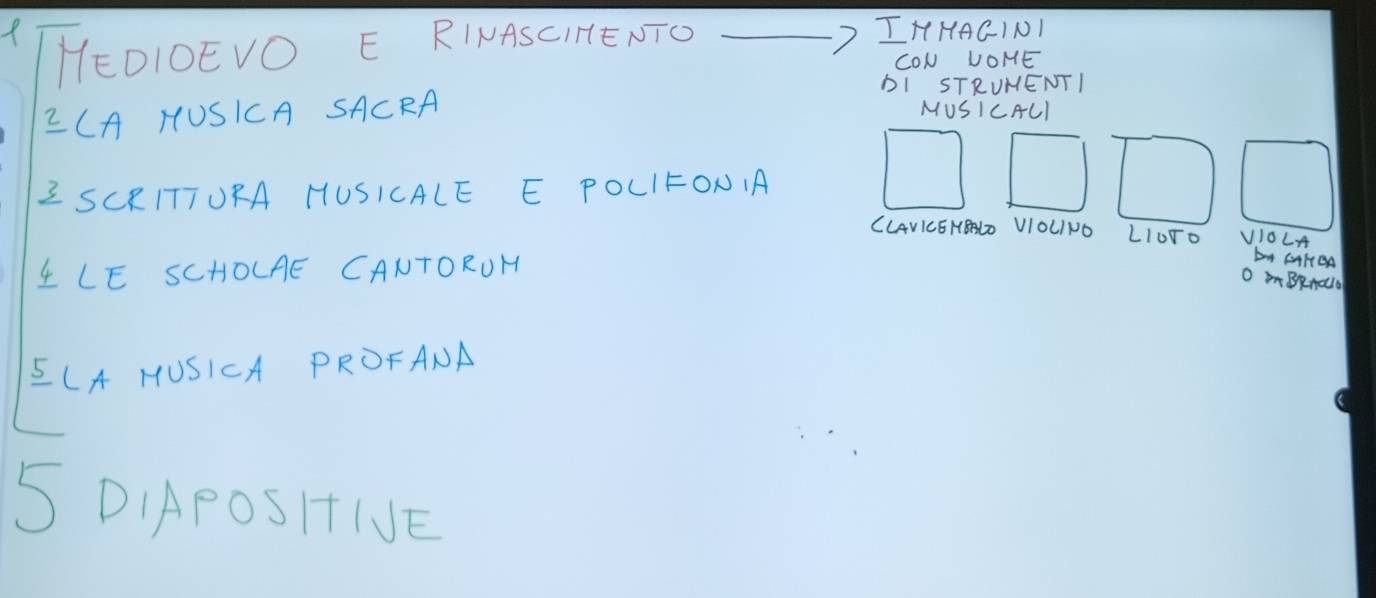 1 MEDIOEVO E RINASCIMENTO
2 LA MUSICA SACRA
3 SCRITTURA MUSICALE E POLIFONIA
4 LE SCHOLAE CANTORUM
5 LA MUSICA PROFANA
5 DIAPOSITIVE
IMMAGINI
CON NOME
DI STRUMENTI
MUSICALI
CLAVICEMBALO VIOLINO LIUTO VIOLA
DA GAMBA
O DA BRACCIO